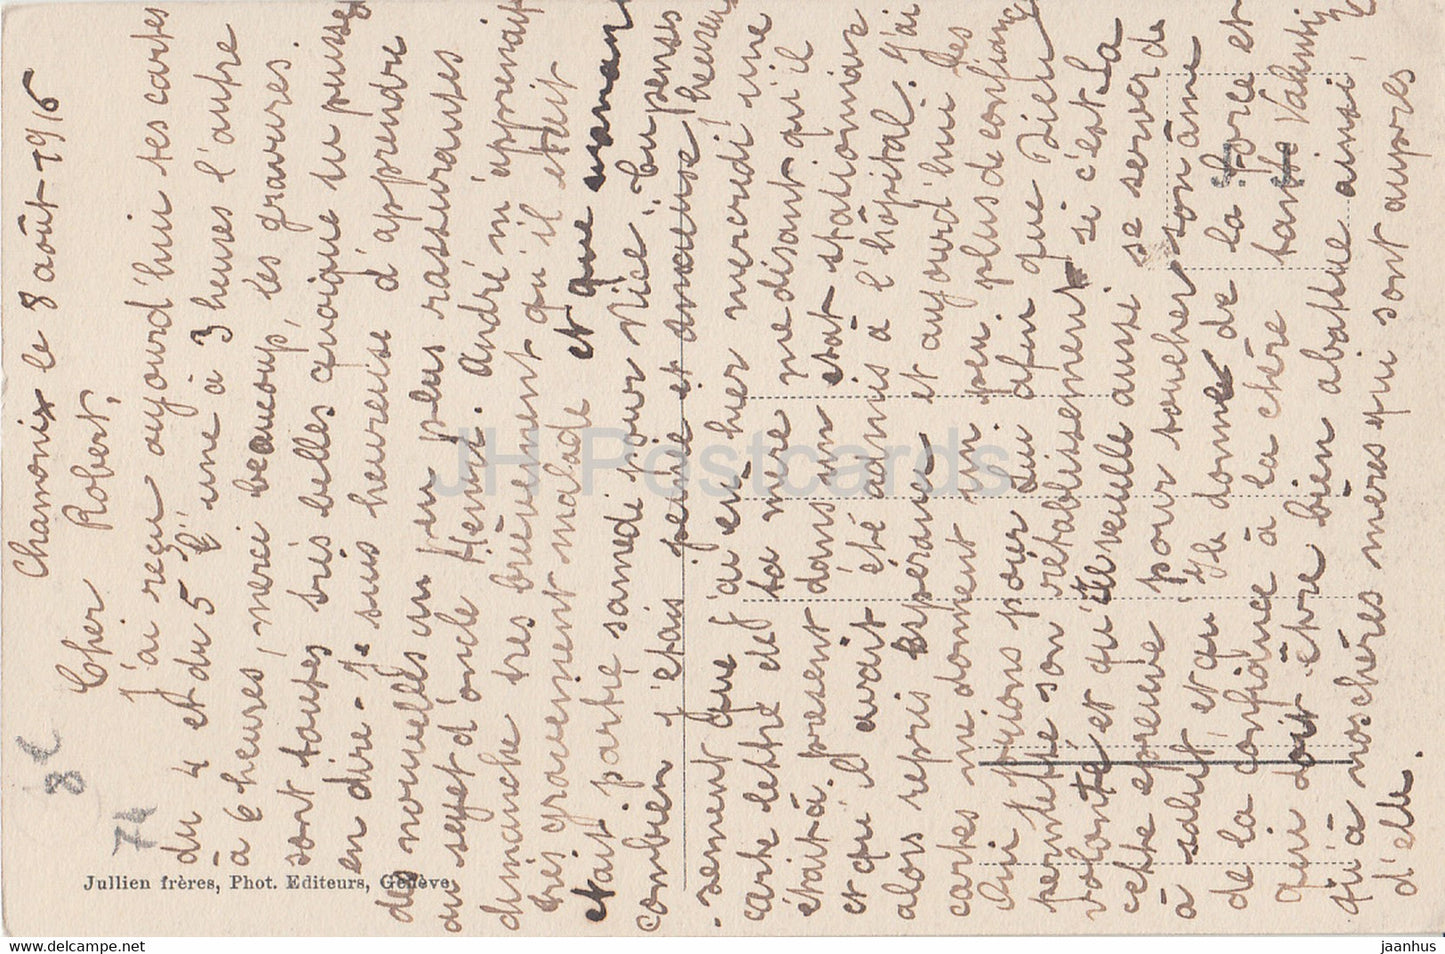 Chamonix le 8 août 1916
Cher Robert,
J'ai reçu aujourd'hui tes cartes
du 4 et du 5 l'une à 3 heures l'autre
à 6 heures, merci beaucoup, les gravures
sont toutes très belles quoique tu puisses
en dire - Je suis heureuse d'apprendre
des nouvelles un peu rassurantes
au sujet d'oncle Henri. André m'apprenait
dimanche très brièvement qu'il était
très gravement malade et que maman
était partie samedi pour Nice, tu penses
combien j'étais peinée et anxieuse heureu
-sement que j'ai eu hier mercredi une
carte lettre de ta mère me disant qu'il
était à présent dans un état stationnaire
et qu'il avait été admis à l'hôpital. J'ai
alors repris espérance et aujourd'hui les
cartes me donnent un peu plus de confiance
Oui prions pour lui afin que Dieu
permette son rétablissement si c'est La
volonté et qu'il veuille aussi se servir de
cette épreuve pour toucher son âme
à salut, et qu'Il donne de la force et
de la confiance à la chère tante
qui doit être bien abattue ainsi
qu'à nos chères mères qui sont auprès
d'elle.
Jullien frères, Phot. Editeurs, Genève
74
JH Postcards
www.delcampe.net
jaanhus